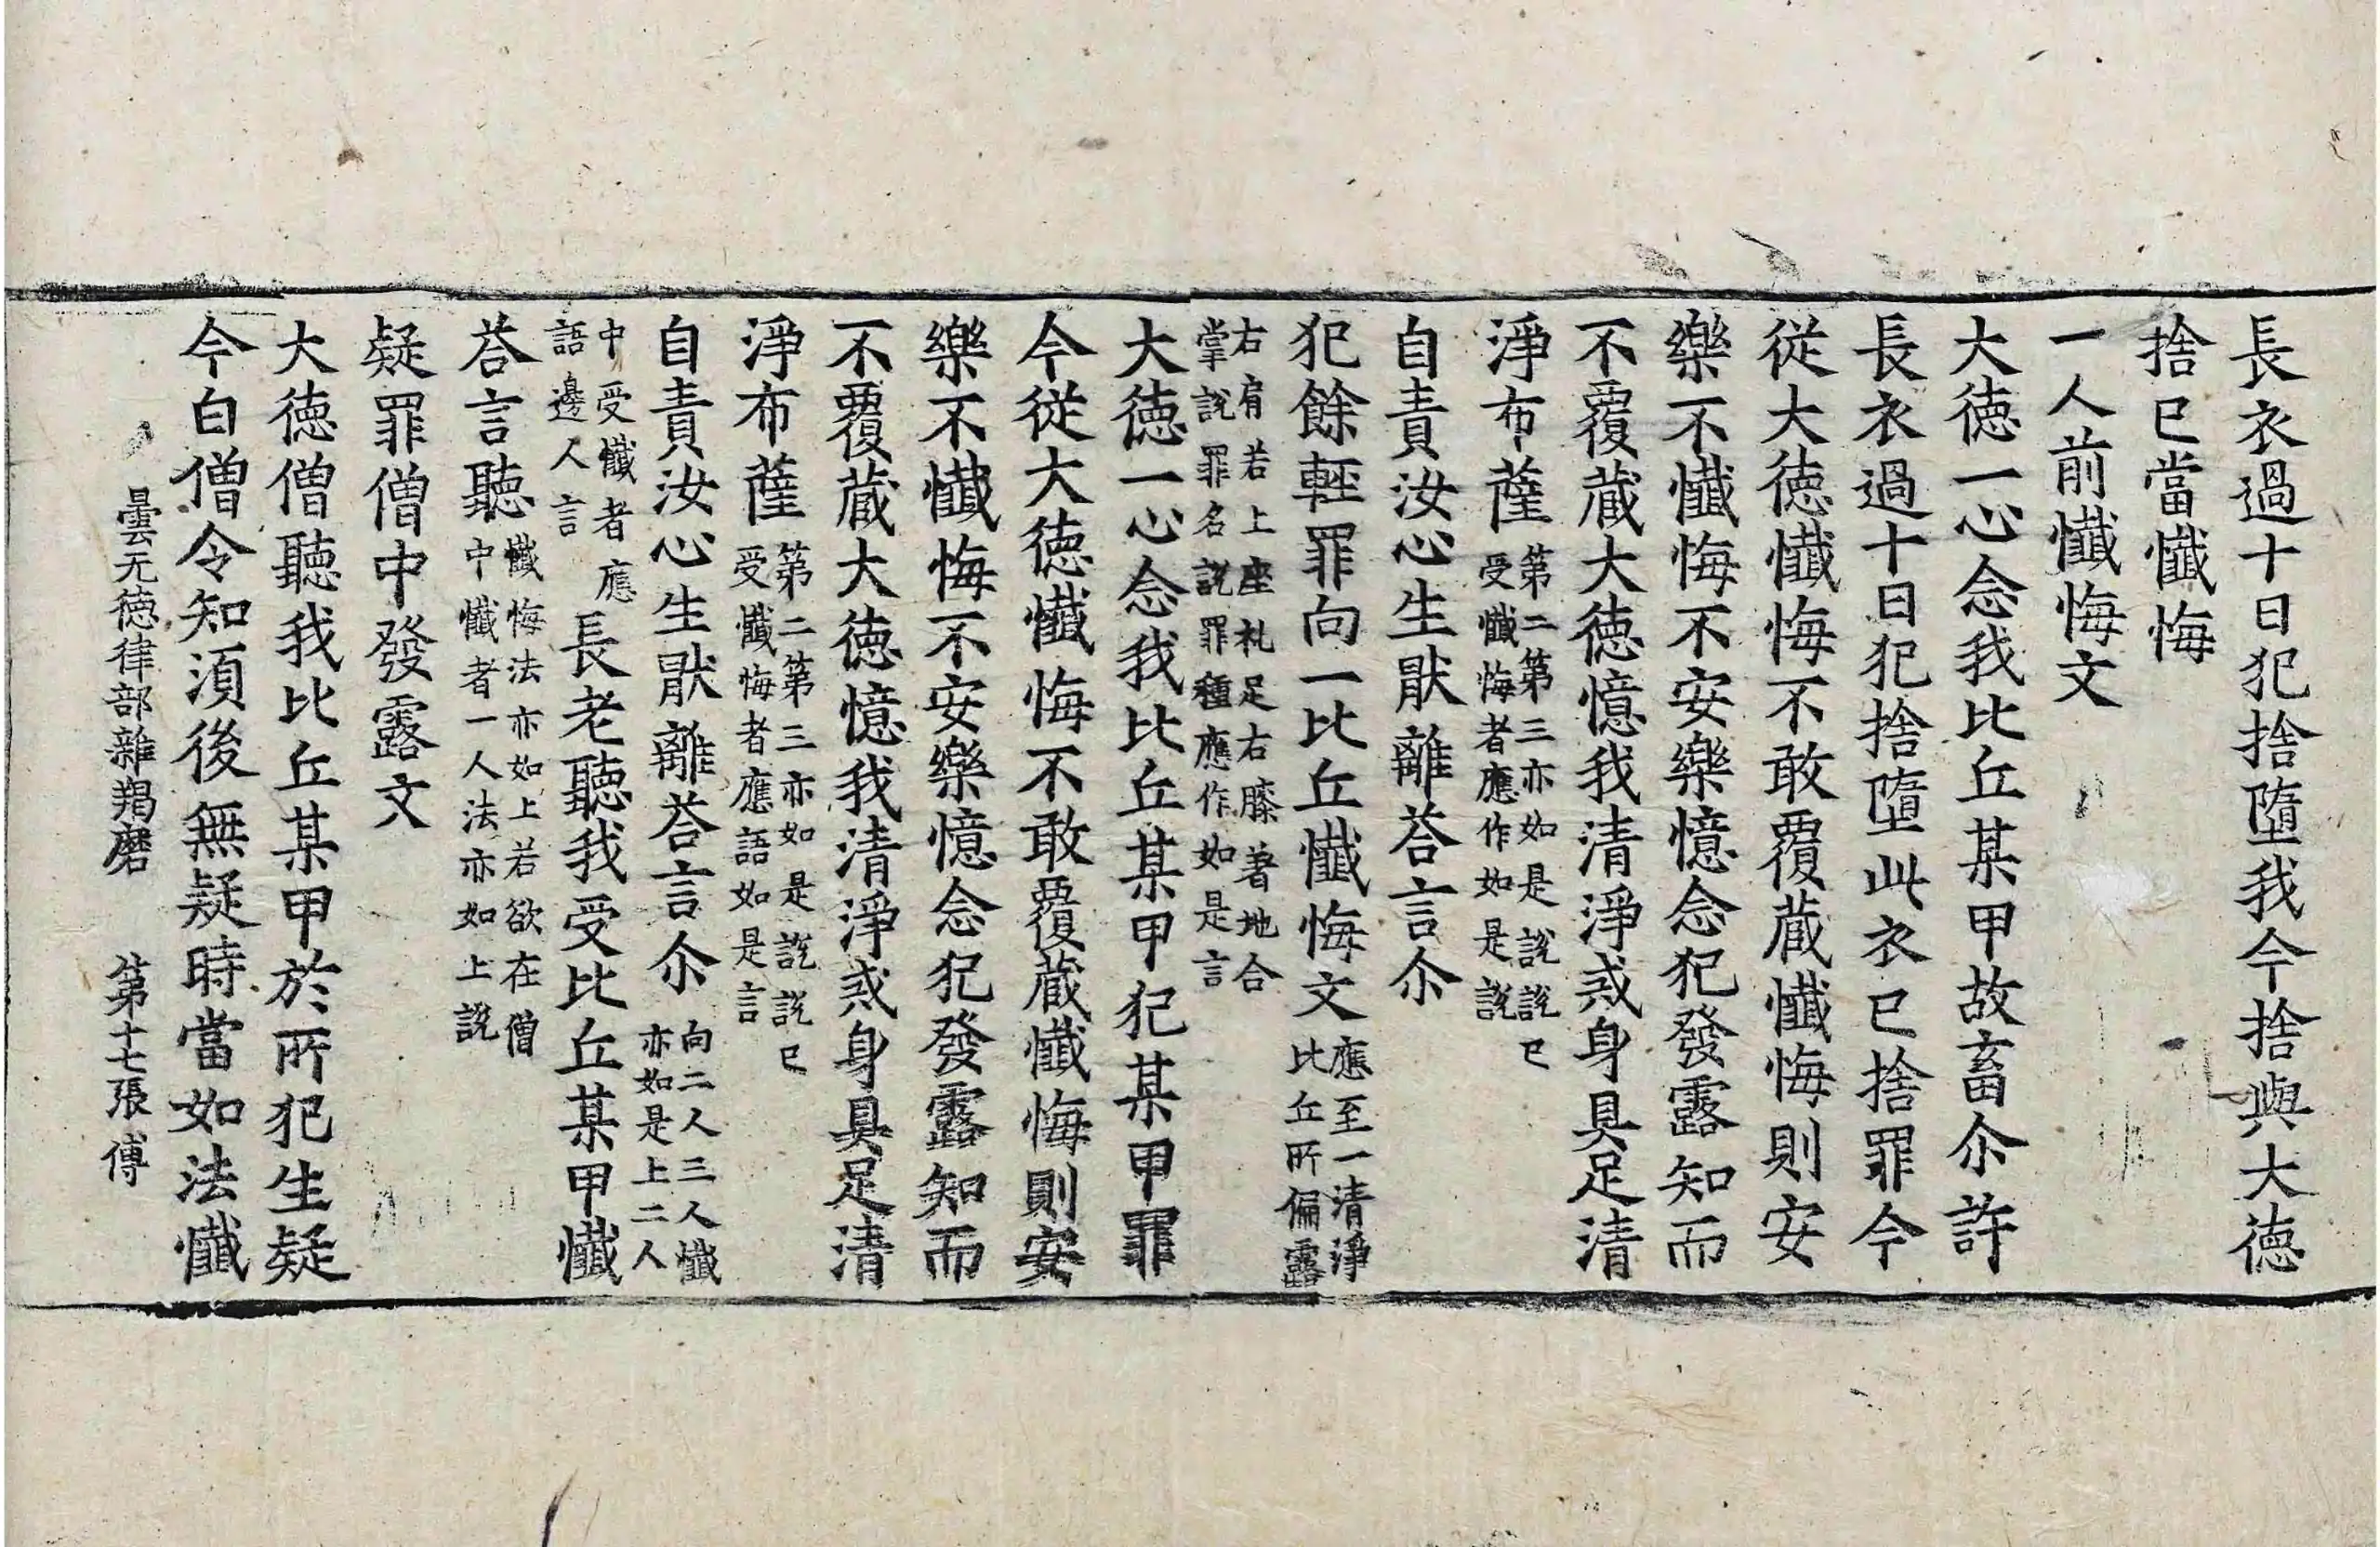 長衣過十日犯捨墮我今捨與大德
捨已當懺悔
一人前懺悔文
大德一心念我比丘某甲故畜尒許
長衣過十日犯捨墮此衣已捨罪今
從大德懺悔不敢覆蔵懺悔則安
樂不懺悔不安樂憶念犯發露知而
不覆蔵大德憶我清淨戒身具足清
淨布薩第二第三亦如是說說已
受懺悔者應作如是說
自責汝心生猒離荅言尒
犯餘輕罪向一比丘懺悔文應至一清淨
比丘所偏露
右肩若上座礼足右膝著地合
掌說罪名說罪種應作如是言
大德一心念我比丘某甲犯某甲罪
今從大德懺悔不敢覆蔵懺悔則安
樂不懺悔不安樂憶念犯發露知而
不覆蔵大德憶我清淨戒身具足清
淨布薩第二第三亦如是說說已
受懺悔者應語如是言
自責汝心生猒離荅言尒向二人三人懺
亦如是上二人
中受懺者應
語邊人言
長老聽我受比丘某甲懺
荅言聽懺悔法亦如上若欲在僧
中懺者一人法亦如上說
疑罪僧中發露文
大德僧聽我比丘某甲於所犯生疑
今白僧令知須後無疑時當如法懺
曇无德律部雜羯磨 第十七張 傅